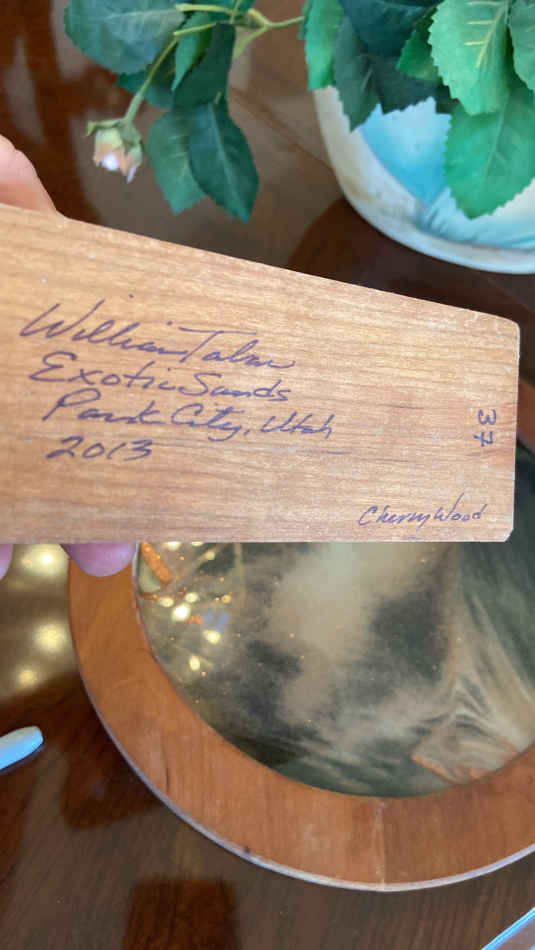 William Tabar
Exotic Sands
Park City, Utah
2013
37
Cherry Wood